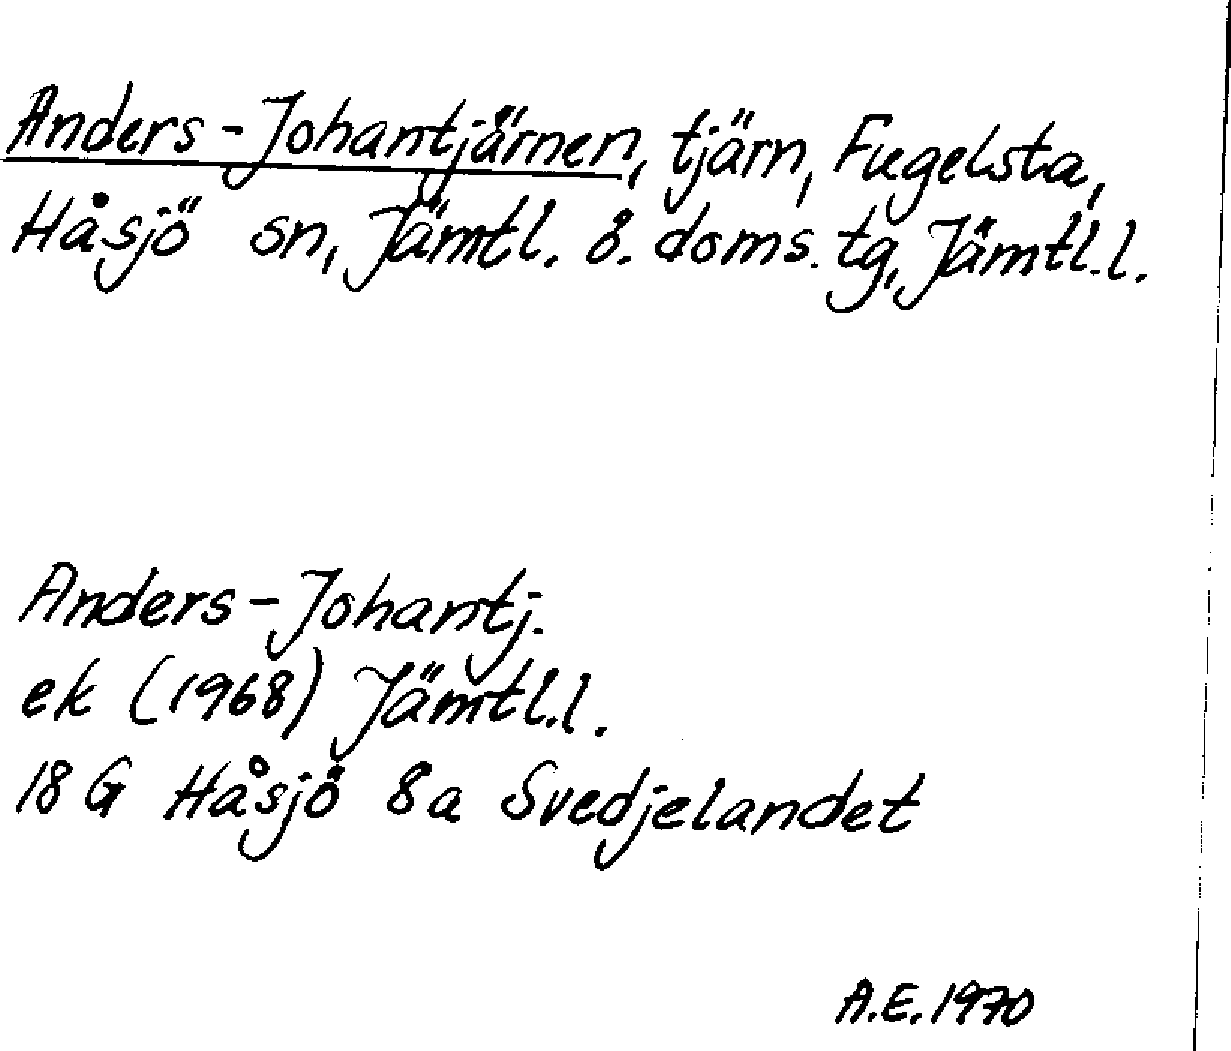 Anders-Johantjärnen, tjärn, Fugelsta,
Håsjö sn, Jämtl. ö. doms. tg, Jämtl.l.
Anders-Johantj.
ek (1968) Jämtl.l.
18 G Håsjö 8a Svedjelandet
A.E. 1970